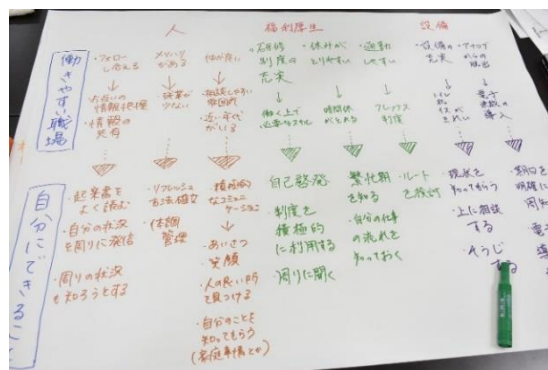 人
福利厚生
設備
働きやすい職場
・フォロー
し合える
↓
お互いの
情報把握
・情報の
共有
メリハリ
がある
↓
残業が
少ない
仲が良い
↓
相談しやすい
雰囲気
近い年代
がいる
・研修
制度の
充実
↓
働く上で
必要なスキル
・休みが
とりやすい
↓
時間休
がとれる
・通勤
しやすい
↓
フレックス
制度
・設備の
充実
↓
トイレ
イスが
きれい
・アナログ
からの脱出
↓
電子
決裁の
導入
自分にできること
・起案書を
よく読む
・自分の状況
を周りに発信
・周りの状況
も知ろうとする
・リフレッシュ
方法確立
・体調
管理
・積極的
なコミュニ
ケーション
↓
・あいさつ
・笑顔
・人の良い所
を見つける
・自分のことを
知ってもらう
(家庭事情とか)
自己啓発
・制度を
積極的
に利用する
・周りに聞く
繁忙期
を知る
・自分の仕事
の流れを
知っておく
・ルート
を検討
・現状を
知ってもらう
・上に相談
する
・そうじ
する
・期日を
明確に
周知